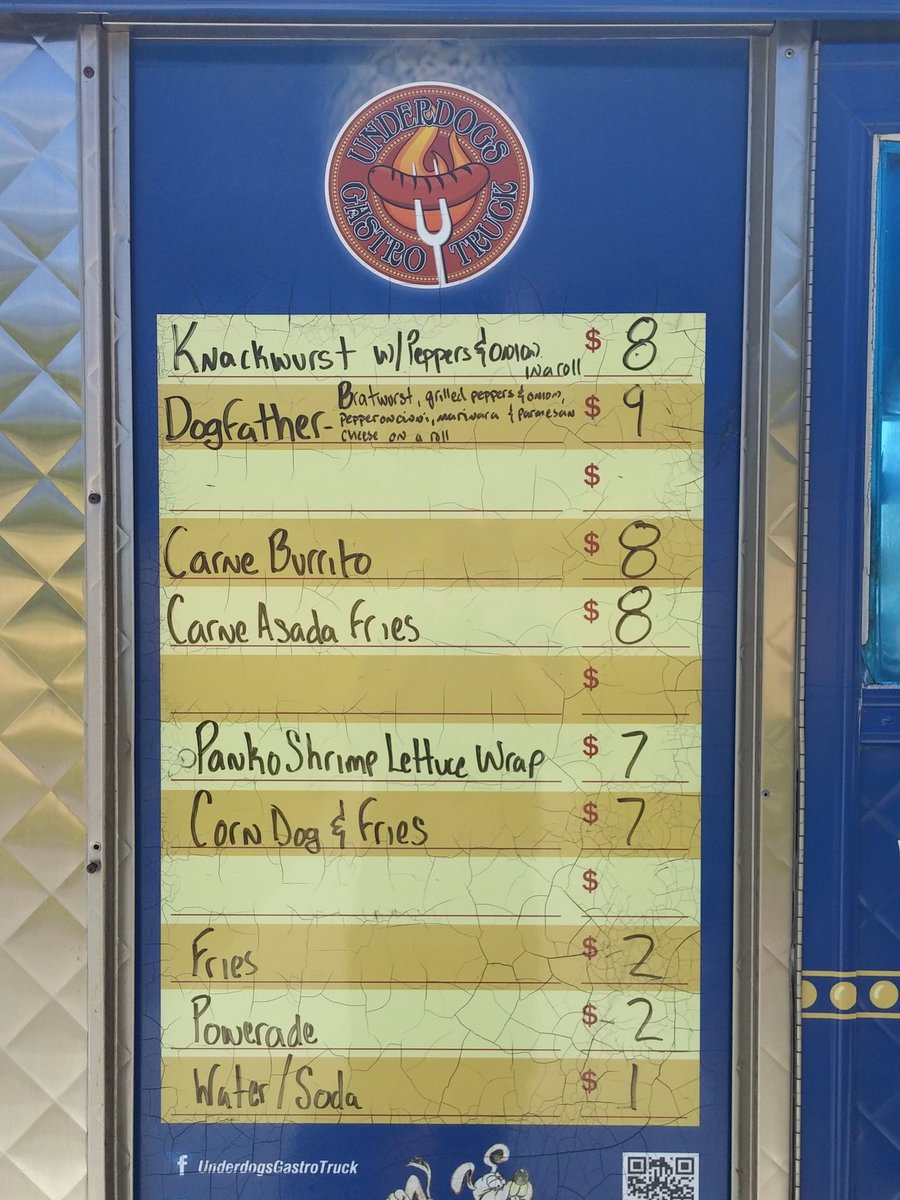 UNDERDOGS
GASTRO TRUCK
Knackwurst w/Peppers & onion in a roll $ 8
Dogfather- Bratwurst, grilled peppers & onion, $ 9
pepperoncini, marinara & parmesan
cheese on a roll
$
Carne Burrito $ 8
Carne Asada Fries $ 8
$
Panko Shrimp Lettuce Wrap $ 7
Corn Dog & Fries $ 7
$
Fries $ 2
Powerade $ 2
Water/Soda $ 1
f UnderdogsGastroTruck